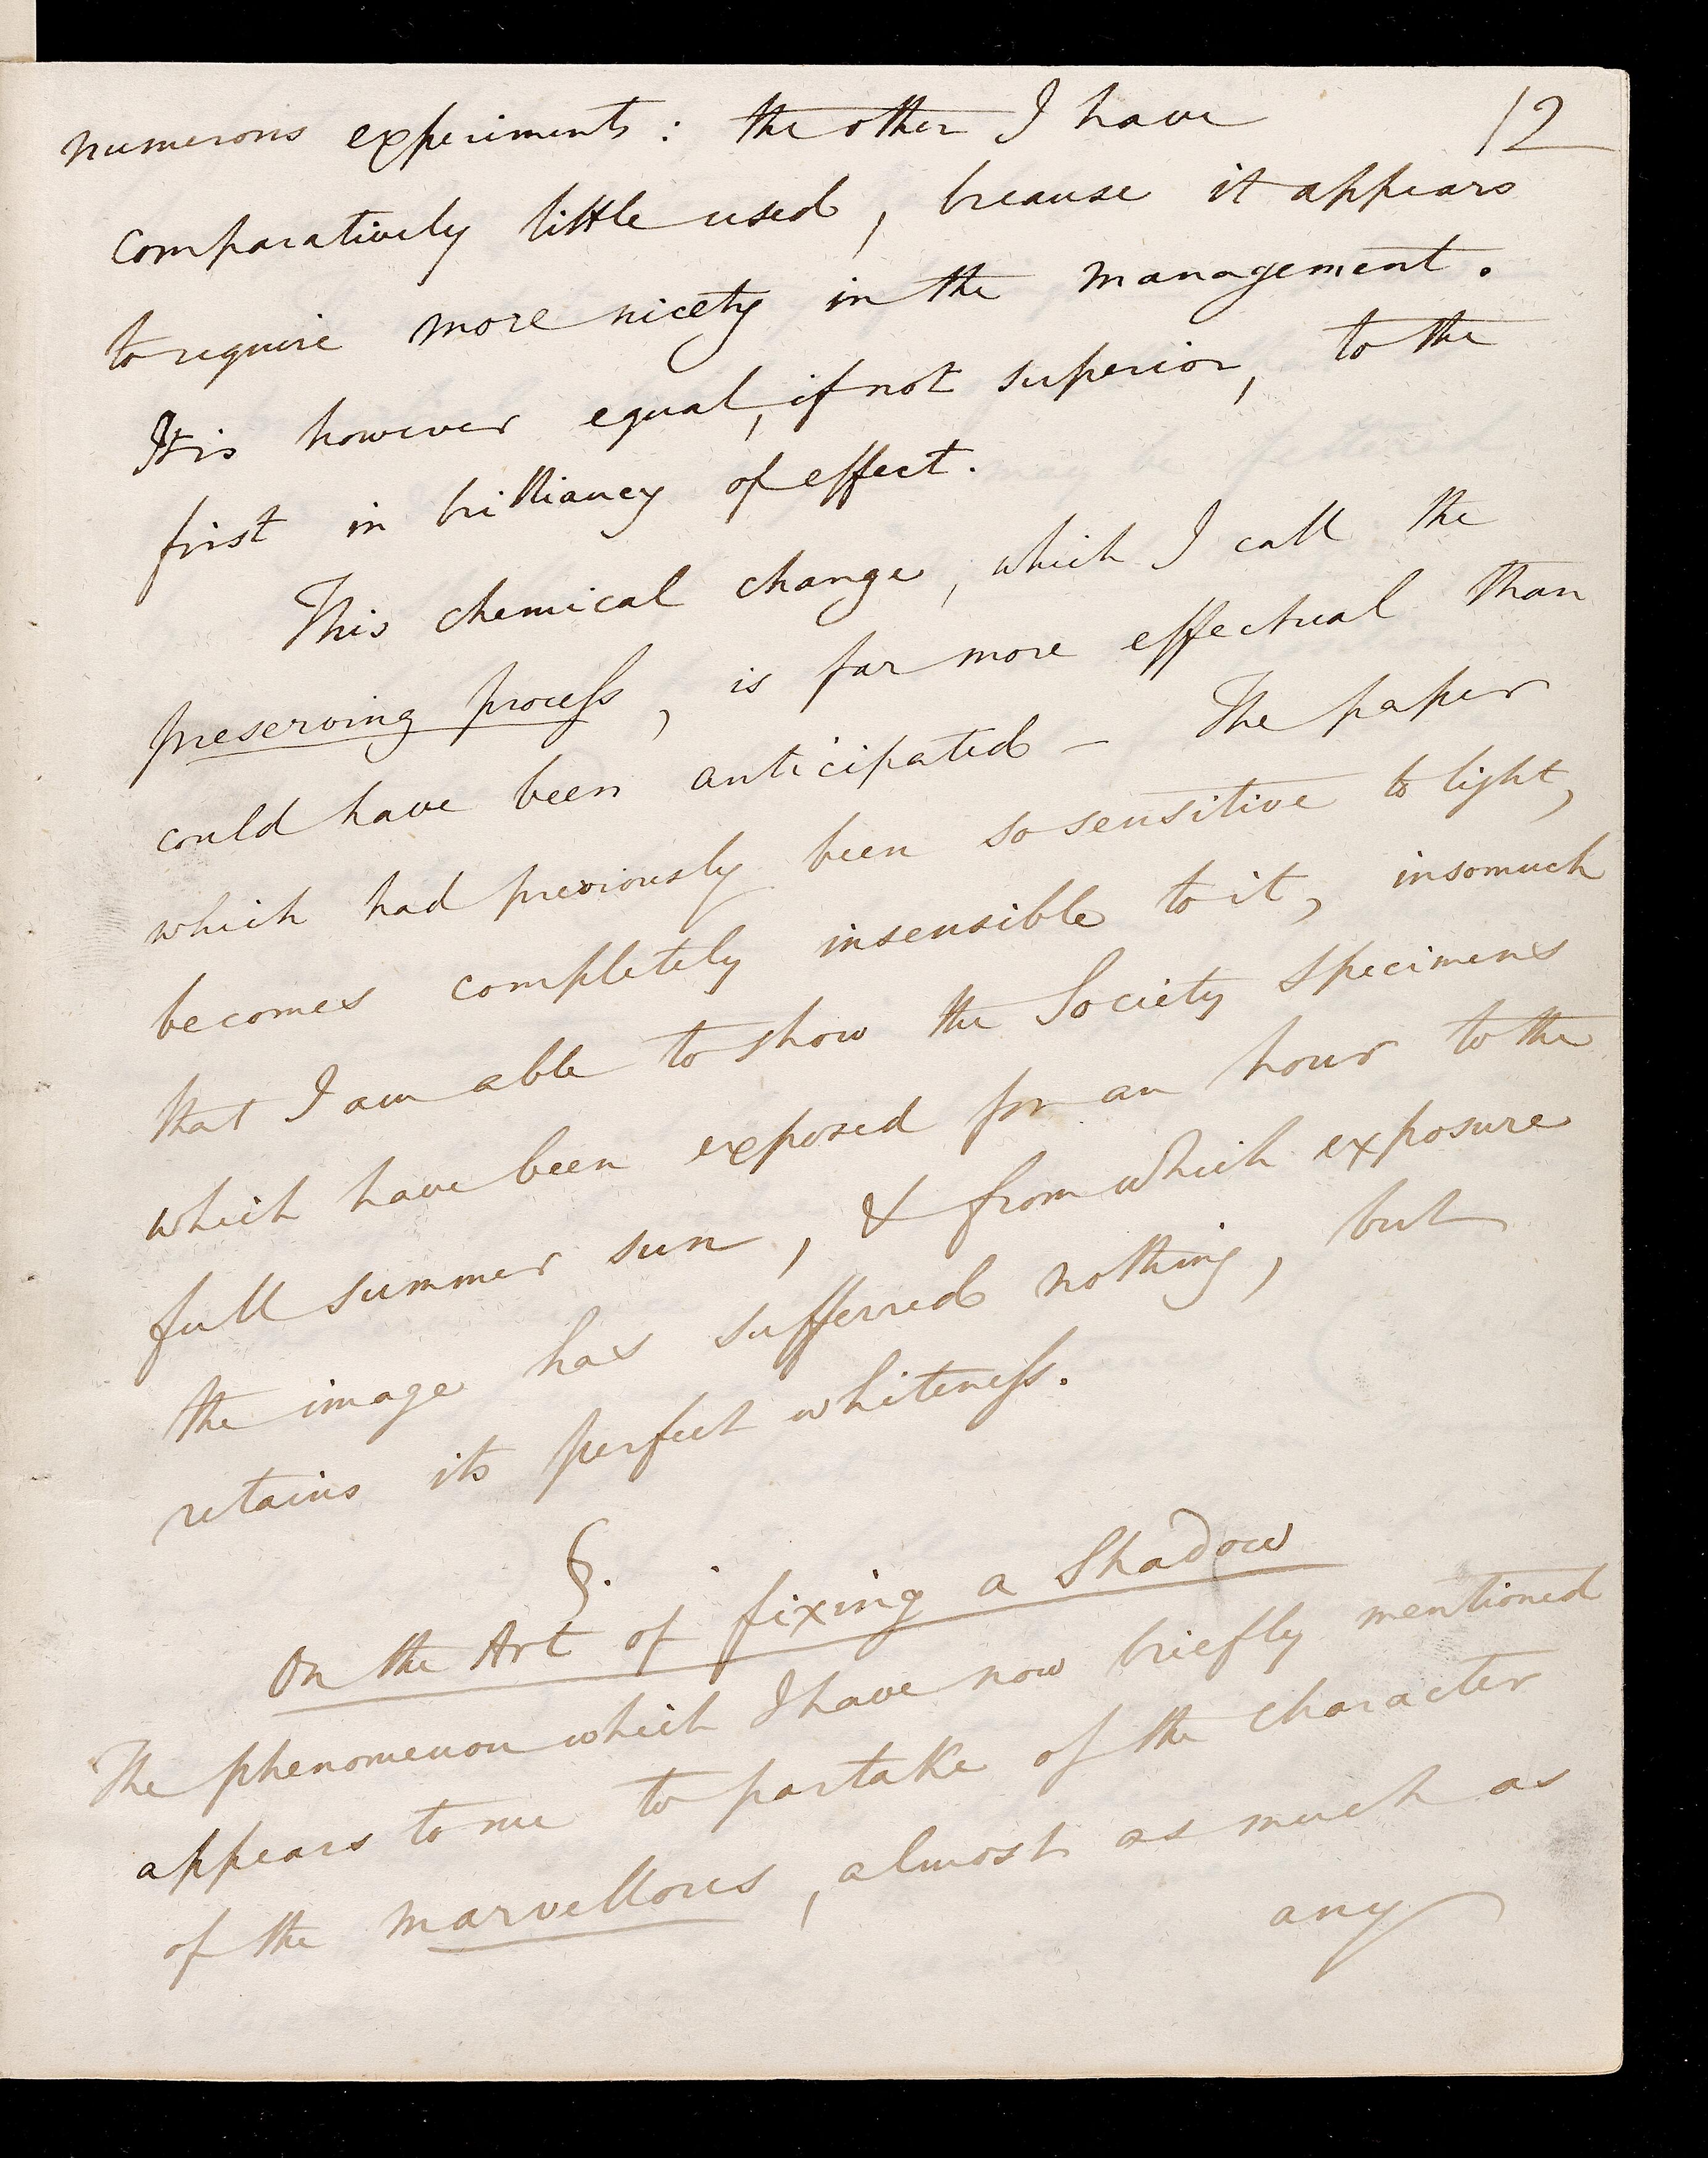 12
numerous experiments: the other I have
comparatively little used, because it appears
to require more nicety in the management.
It is however equal, if not superior, to the
first in brilliancy of effect.
This chemical change, which I call the
preserving process, is far more effectual than
could have been anticipated – The paper
which had previously been so sensitive to light,
becomes completely insensible to it, insomuch
that I am able to show the Society specimens
which have been exposed for an hour to the
full summer sun, & from which exposure
the image has suffered nothing, but
retains its perfect whiteness.
§.
On the Art of fixing a Shadow
The phenomenon which I have now briefly mentioned
appears to me to partake of the character
of the marvellous, almost as much as
any